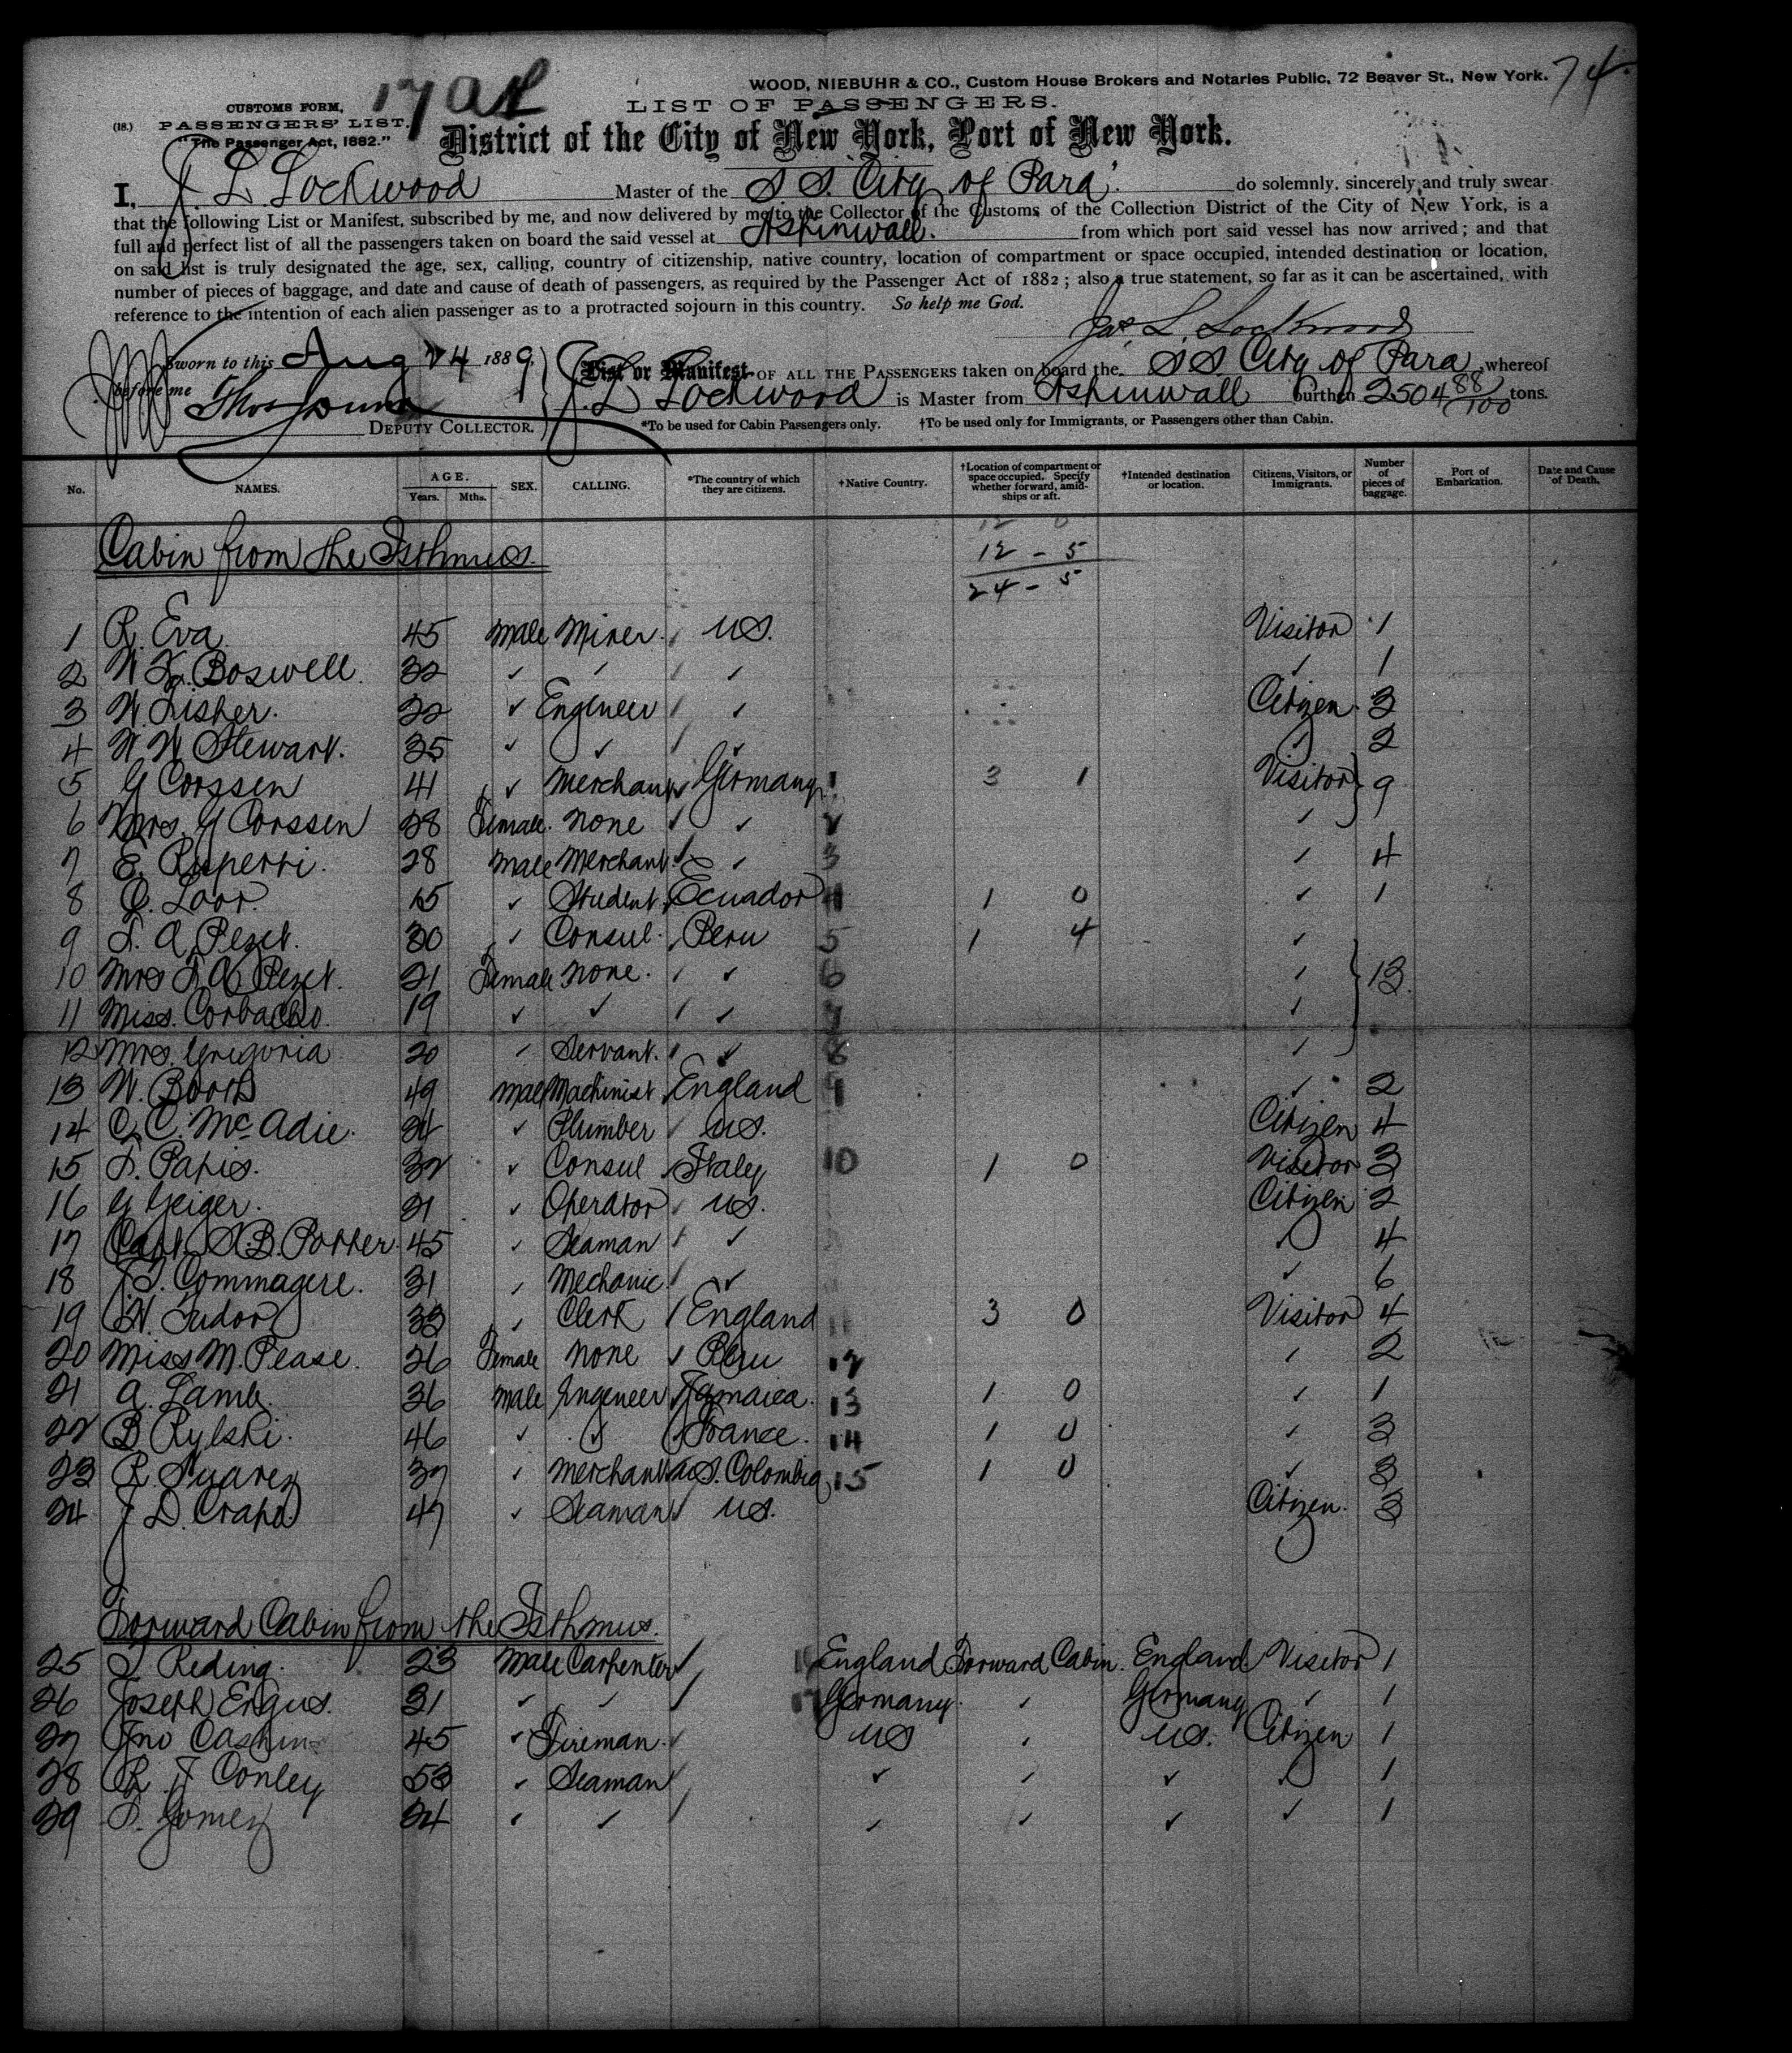 74.
WOOD, NIEBUHR & CO., Custom House Brokers and Notaries Public, 72 Beaver St., New York.
CUSTOMS FORM,
(18.) PASSENGERS' LIST.
"The Passenger Act, 1882."
LIST OF PASSENGERS.
District of the City of New York, Port of New York.
I, J. L. Lockwood Master of the S S. City of Para. do solemnly, sincerely and truly swear
that the following List or Manifest, subscribed by me, and now delivered by me to the Collector of the Customs of the Collection District of the City of New York, is a
full and perfect list of all the passengers taken on board the said vessel at Ashinwall. from which port said vessel has now arrived; and that
on said list is truly designated the age, sex, calling, country of citizenship, native country, location of compartment or space occupied, intended destination or location,
number of pieces of baggage, and date and cause of death of passengers, as required by the Passenger Act of 1882; also a true statement, so far as it can be ascertained, with
reference to the intention of each alien passenger as to a protracted sojourn in this country. So help me God.
Jas. L. Lockwood
Sworn to this Aug 24 1889
before me
DEPUTY COLLECTOR.
List or Manifest OF ALL THE PASSENGERS taken on board the S S City of Para, whereof
J. L Lockwood is Master from Ashinwall burthen 2504 88/100 tons.
*To be used for Cabin Passengers only. †To be used only for Immigrants, or Passengers other than Cabin.
No. NAMES. AGE. Years. Mths. SEX. CALLING. *The country of which they are citizens. †Native Country. †Location of compartment or space occupied. Specify whether forward, amidships or aft. †Intended destination or location. Citizens, Visitors, or Immigrants. Number of pieces of baggage. Port of Embarkation. Date and Cause of Death.
Cabin from the Isthmus.
12 - 5
24 - 5
1 R. Eva 45 Male Miner. US. Visitor 1
2 Boswell 32 ✓ ✓ ✓ ✓ 1
3 W. Fisher. 22 ✓ Engineer ✓ Citizen 3
4 W W Stewart. 35 ✓ ✓ ✓ ✓ 2
5 G Corssen 41 ✓ Merchant Germany 1 3 1 Visitor 9
6 Mrs. G Corssen 28 Female. None ✓ 2 ✓
7 E. Ruperti. 28 Male Merchant ✓ 3 ✓ 4
8 Loor. 15 ✓ Student Ecuador 4 1 0 ✓ 1
9 F. A Pezet. 30 ✓ Consul. Peru 5 1 4 ✓
10 Mrs F A Pezet. 21 Female None. ✓ 6 ✓ 13.
11 Miss. Corbacho 19 ✓ ✓ ✓ 7 ✓
12 Mrs. Gregoria 20 ✓ Servant. ✓ 8 ✓
13 W. Booth 49 Male Machinist England 9 ✓ 2
14 C. C. McAdie. 24 ✓ Plumber US. Citizen 4
15 F. Papis. 32 ✓ Consul Italy 10 1 0 Visitor 3
16 G Geiger. 21 ✓ Operator US. Citizen 2
17 Capt. S. B. Potter 45 ✓ Seaman ✓ ✓ 4
18 Commagere. 31 ✓ Mechanic ✓ ✓ 6
19 W. Tudor 33 ✓ Clerk England 11 3 0 Visitor 4
20 Miss M. Pease. 26 Female None Peru 12 ✓ 2
21 A. Lamb. 36 Male Engeneer Jamaica. 13 1 0 ✓ 1
22 B Rylski. 46 ✓ ✓ France. 14 1 0 ✓ 3
23 R. Suarez 37 ✓ Merchant U.S. Colombia 15 1 0 ✓ 3
24 J D. Crapo 47 ✓ Seaman US. Citizen. 3
Forward Cabin from the Isthmus.
25 Reding. 23 Male Carpenter 16 England Forward Cabin. England Visitor 1
26 Joseph Ergus. 31 ✓ ✓ 17 Germany. ✓ Germany ✓ 1
27 Jno Cashin 45 ✓ Fireman. US ✓ US. Citizen 1
28 R. J Conley 53 ✓ Seaman ✓ ✓ ✓ ✓ 1
29 Gomez 24 ✓ ✓ ✓ ✓ ✓ ✓ 1